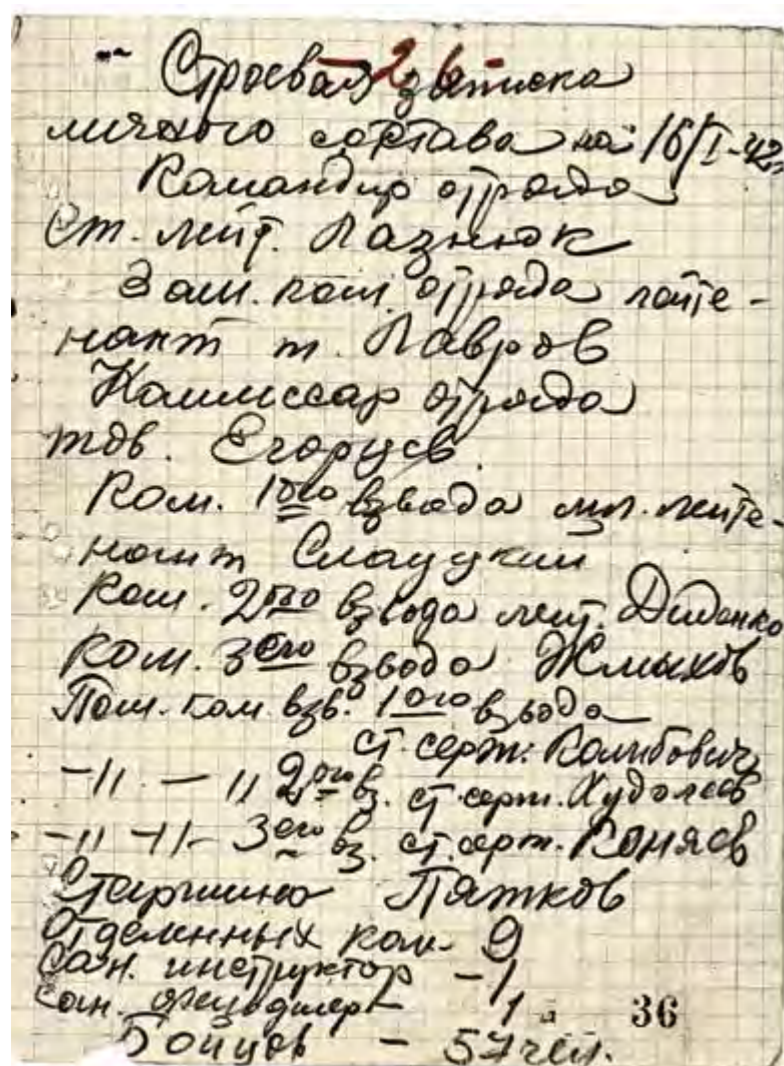 - 26 -
Строевая записка
личного состава на 16/I-42г
Командир отряда
Ст. лейт. Лазнюк
Зам. ком. отряда лейте-
нант т. Лавров
Комиссар отряда
тов. Егорцев
Ком. 1ого взвода мл. лейте-
нант Слауцкий
Ком. 2ого взвода лейт. Диденко
Ком. 3его взвода Жмыхов
Пом. ком. взв. 1ого взвода
ст. серж. Колибович
-11 - 11 2ого вз. ст. серж. Худолеев
-11 -11- 3его вз. ст. серж. Коняев
Старшина Пятков
Отделенных ком. 9
Сан. инструктор - 1
Сан. - 1
Бойцов - 57 чел.
36